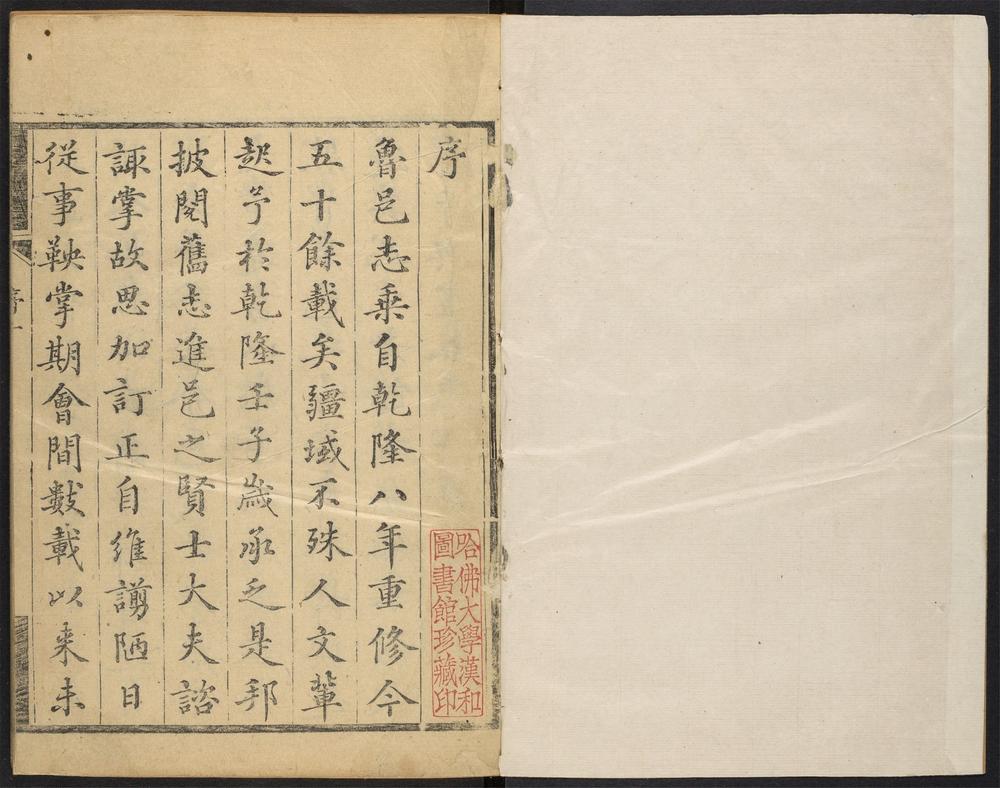 序
魯邑志乘自乾隆八年重修今
五十餘載矣疆域不殊人文輩
起予於乾隆壬子歲承乏是邦
披閱舊志進邑之賢士大夫諮
諏掌故思加訂正自維謭陋日
從事鞅掌期會間數載以来未
序一
哈佛大學漢和
圖書館珍藏印